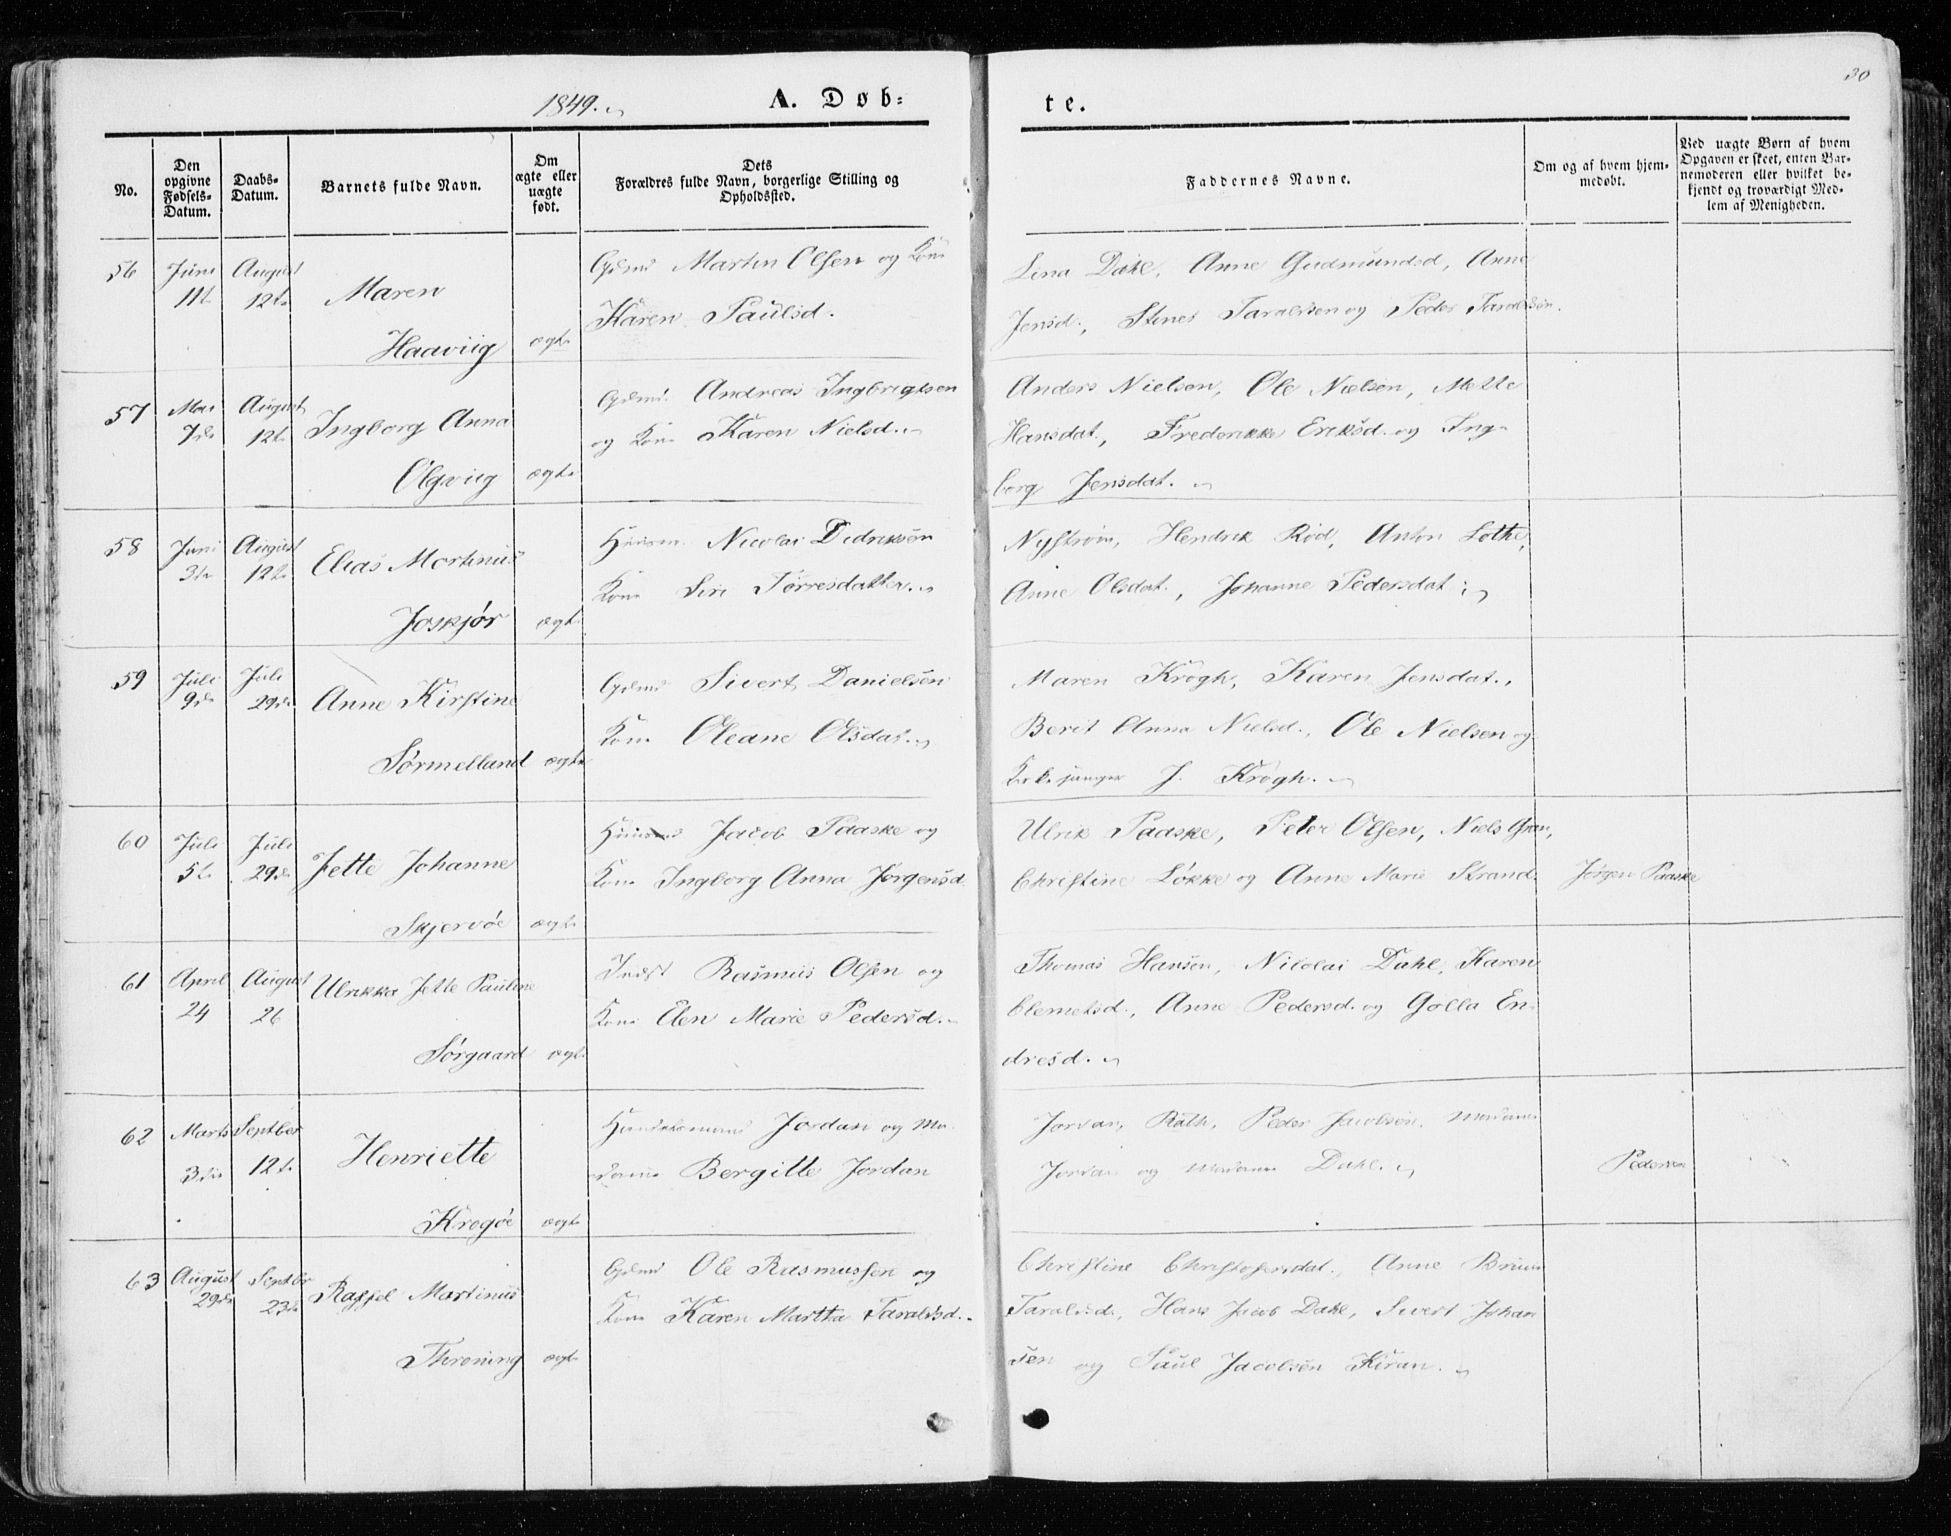 1849.
A. Døb-
te.
30
No.
Den opgivne Fødsels-Datum.
Daabs-Datum.
Barnets fulde Navn.
Om ægte eller uægte født.
Dets Forældres fulde Navn, borgerlige Stilling og Opholdssted.
Faddernes Navne.
Om og af hvem hjemmedøbt.
Ved uægte Børn af hvem Opgaven er skeet, enten Barnemoderen eller hvilket bekjendt og troværdigt Medlem af Menigheden.
56 Juni 11te August 12te Maren
Haaviig ægte
Gdmd Martin Olsen og Kone
Karen Paulsd.
Lina Dahl, Anne Gudmundsd, Anne
Jensd., Stener Taraldsen og Peder Taraldsøn.
57 Mai 7de August 12te Ingborg Anna
Olgviig ægte
Gdmd. Andreas Ingbrigtsen
og Kone Karen Nielsd.
Anders Nielsen, Ole Nielsen, Mette
Hansdat., Frederikke Eriksd. og Ing-
borg Jensdat.
58 Juni 3die August 12te Elias Martinus
Joskjør ægte
Huusm. Nicolai Didriksøn
Kone Siri Torresdatter.
Nystrøm, Hendrik Rød, Anton Lothe,
Anne Olsdat., Johanne Pedersdat.
59 Juli 9de Juli 29de Anne Kirstine
Sørmelland ægte
Gdmd Sivert Danielsen
Kone Oleane Olsdat.
Maren Krogh, Karen Jensdat.,
Berit Anna Nielsd., Ole Nielsen og
Kirkesanger J. Krogh.
60 Juli 5te Juli 29de Jette Johanne
Skjervøe ægte
Huusmd Jacob Paaske og
Kone Ingborg Anna Jørgensd.
Ulrik Paaske, Peter Olsen, Niels Gran,
Christine Løkke og Anne Marie Strand.
Jørgen Paaske
61 April 24 August 26 Ulrikka Jette Pauline
Sørgaard ægte
Indst Rasmus Olsen og
Kone Elen Marie Pedersd.
Thomas Hansen, Nicolai Dahl, Karen
Clemetsd., Anne Pedersd. og Golla En-
dresd.
62 Marts 3die Septber 12te Henriette
Krogøe ægte
Handelsmand Jordan og Ma-
dame Bergitte Jordan
Jordan, Rath, Peder Jacobsen, Madame
Jordan og Madame Dahl.
Pedersen
63 August 29de Septbr 23de Raffel Martinus
Throning ægte
Gdmd Ole Rasmussen og
Kone Karen Martha Taraldsd.
Christine Christophersdat., Anne Bruun
Taraldsd., Hans Jacob Dahl, Sivert Johan
sen og Paul Jacobsen Kiran.